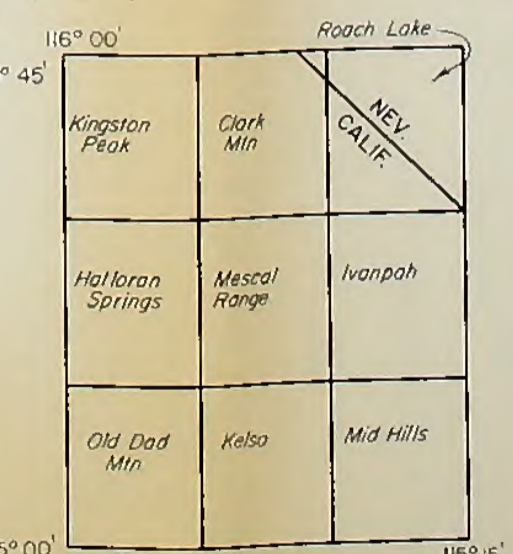 116° 00'
Roach Lake
° 45'
Kingston
Peak
Clark
Mtn
NEV.
CALIF.
Halloran
Springs
Mescal
Range
Ivanpah
Old Dad
Mtn
Kelso
Mid Hills
5° 00'
115° 15'